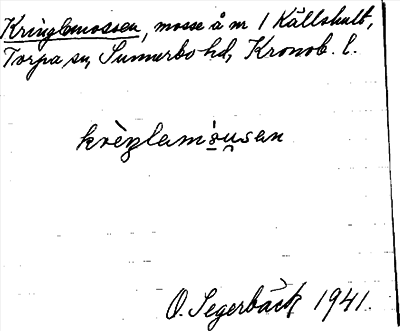 Kringlamossen, mosse å nr 1 Källshult,
Torpa sn, Sunnerbo hd, Kronob. l.
krèŋlam'əusən
O. Segerbäck 1941.